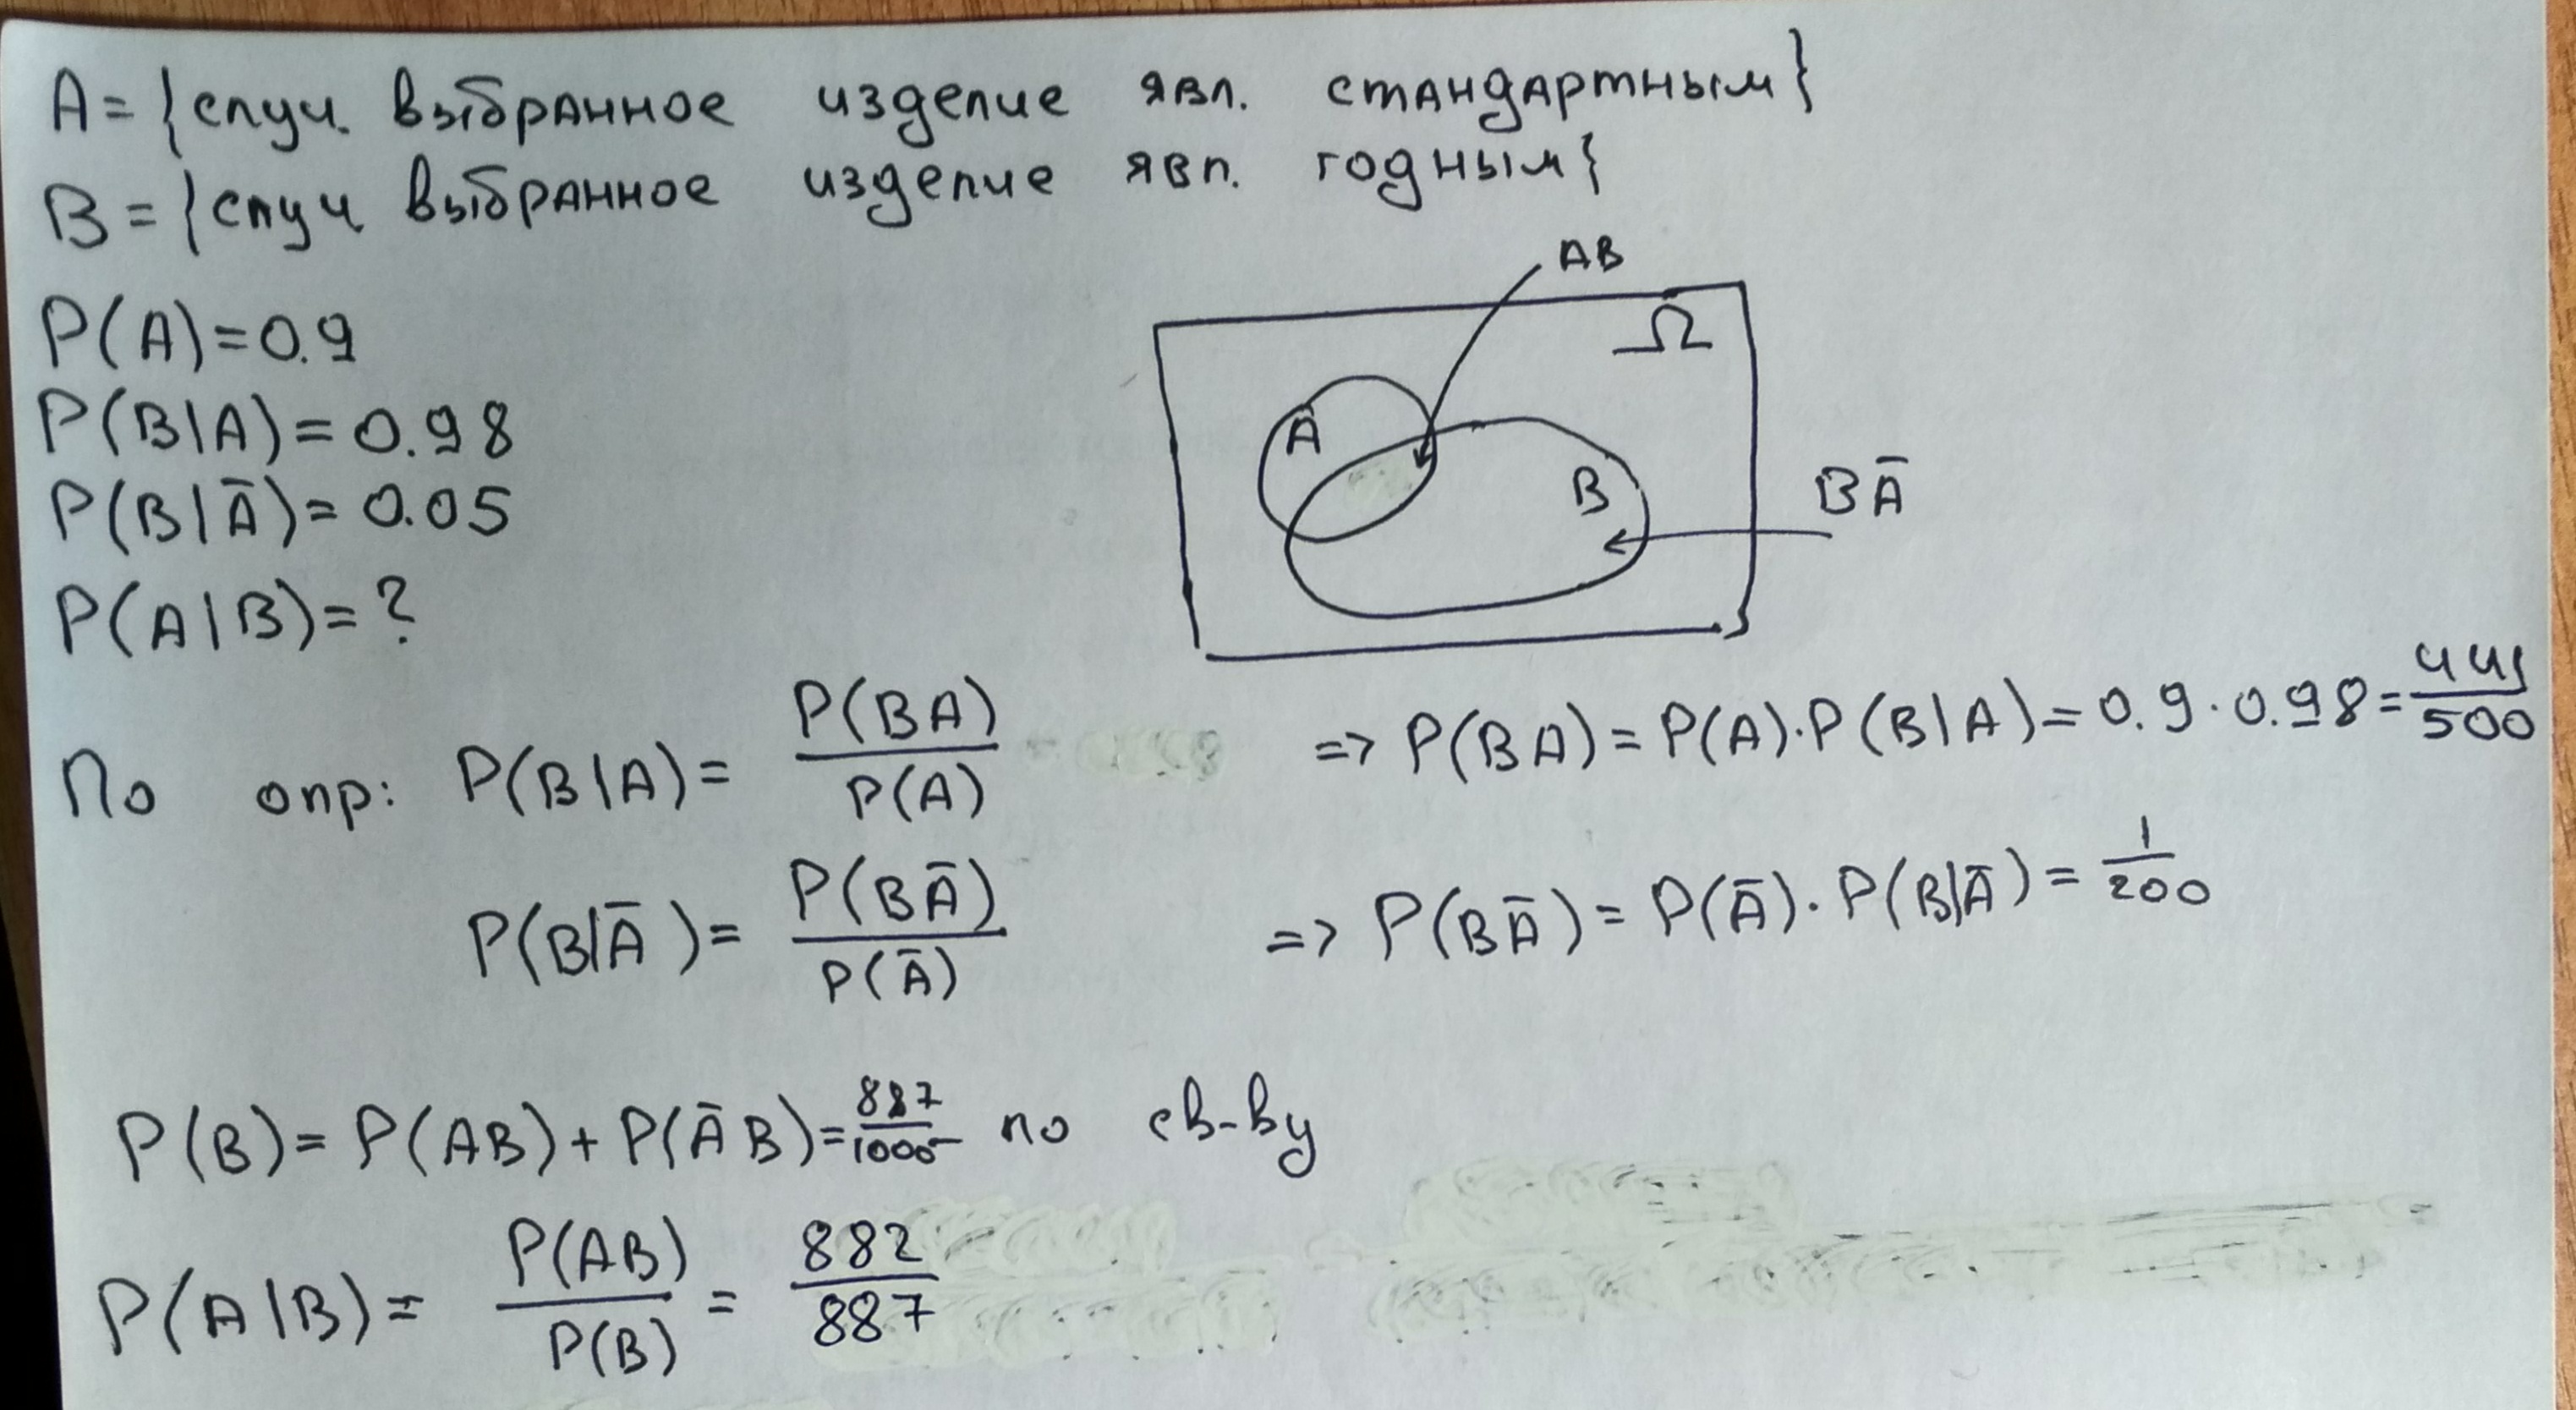 A = {случ. выбранное изделие явл. стандартным}
B = {случ выбранное изделие явл. годным}
P(A)=0.9
P(B|A)=0.98
P(B|Ā)=0.05
P(A|B)=?
AB
Ω
A
B
BĀ
По опр: P(B|A)= P(BA)/P(A) => P(BA)=P(A)·P(B|A)=0.9·0.98=441/500
P(B|Ā)= P(BĀ)/P(Ā) => P(BĀ)=P(Ā)·P(B|Ā)=1/200
P(B)=P(AB)+P(ĀB)=887/1000 по св-ву
P(A|B)= P(AB)/P(B) = 882/887